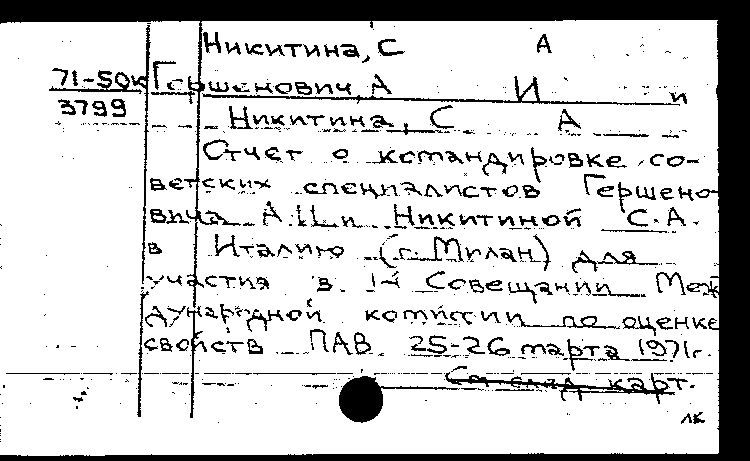 Никитина, С А
71-50к Гершенович, А И и
3799 Никитина, С А
Отчет о командировке со-
ветских специалистов Гершено-
вича А.И. и Никитиной С.А.
в Италию (г. Милан) для
участия в 1-й Совещании Меж
дународной комиссии по оценке
свойств ПАВ 25-26 марта 1971г.
См след карт.
ЛК